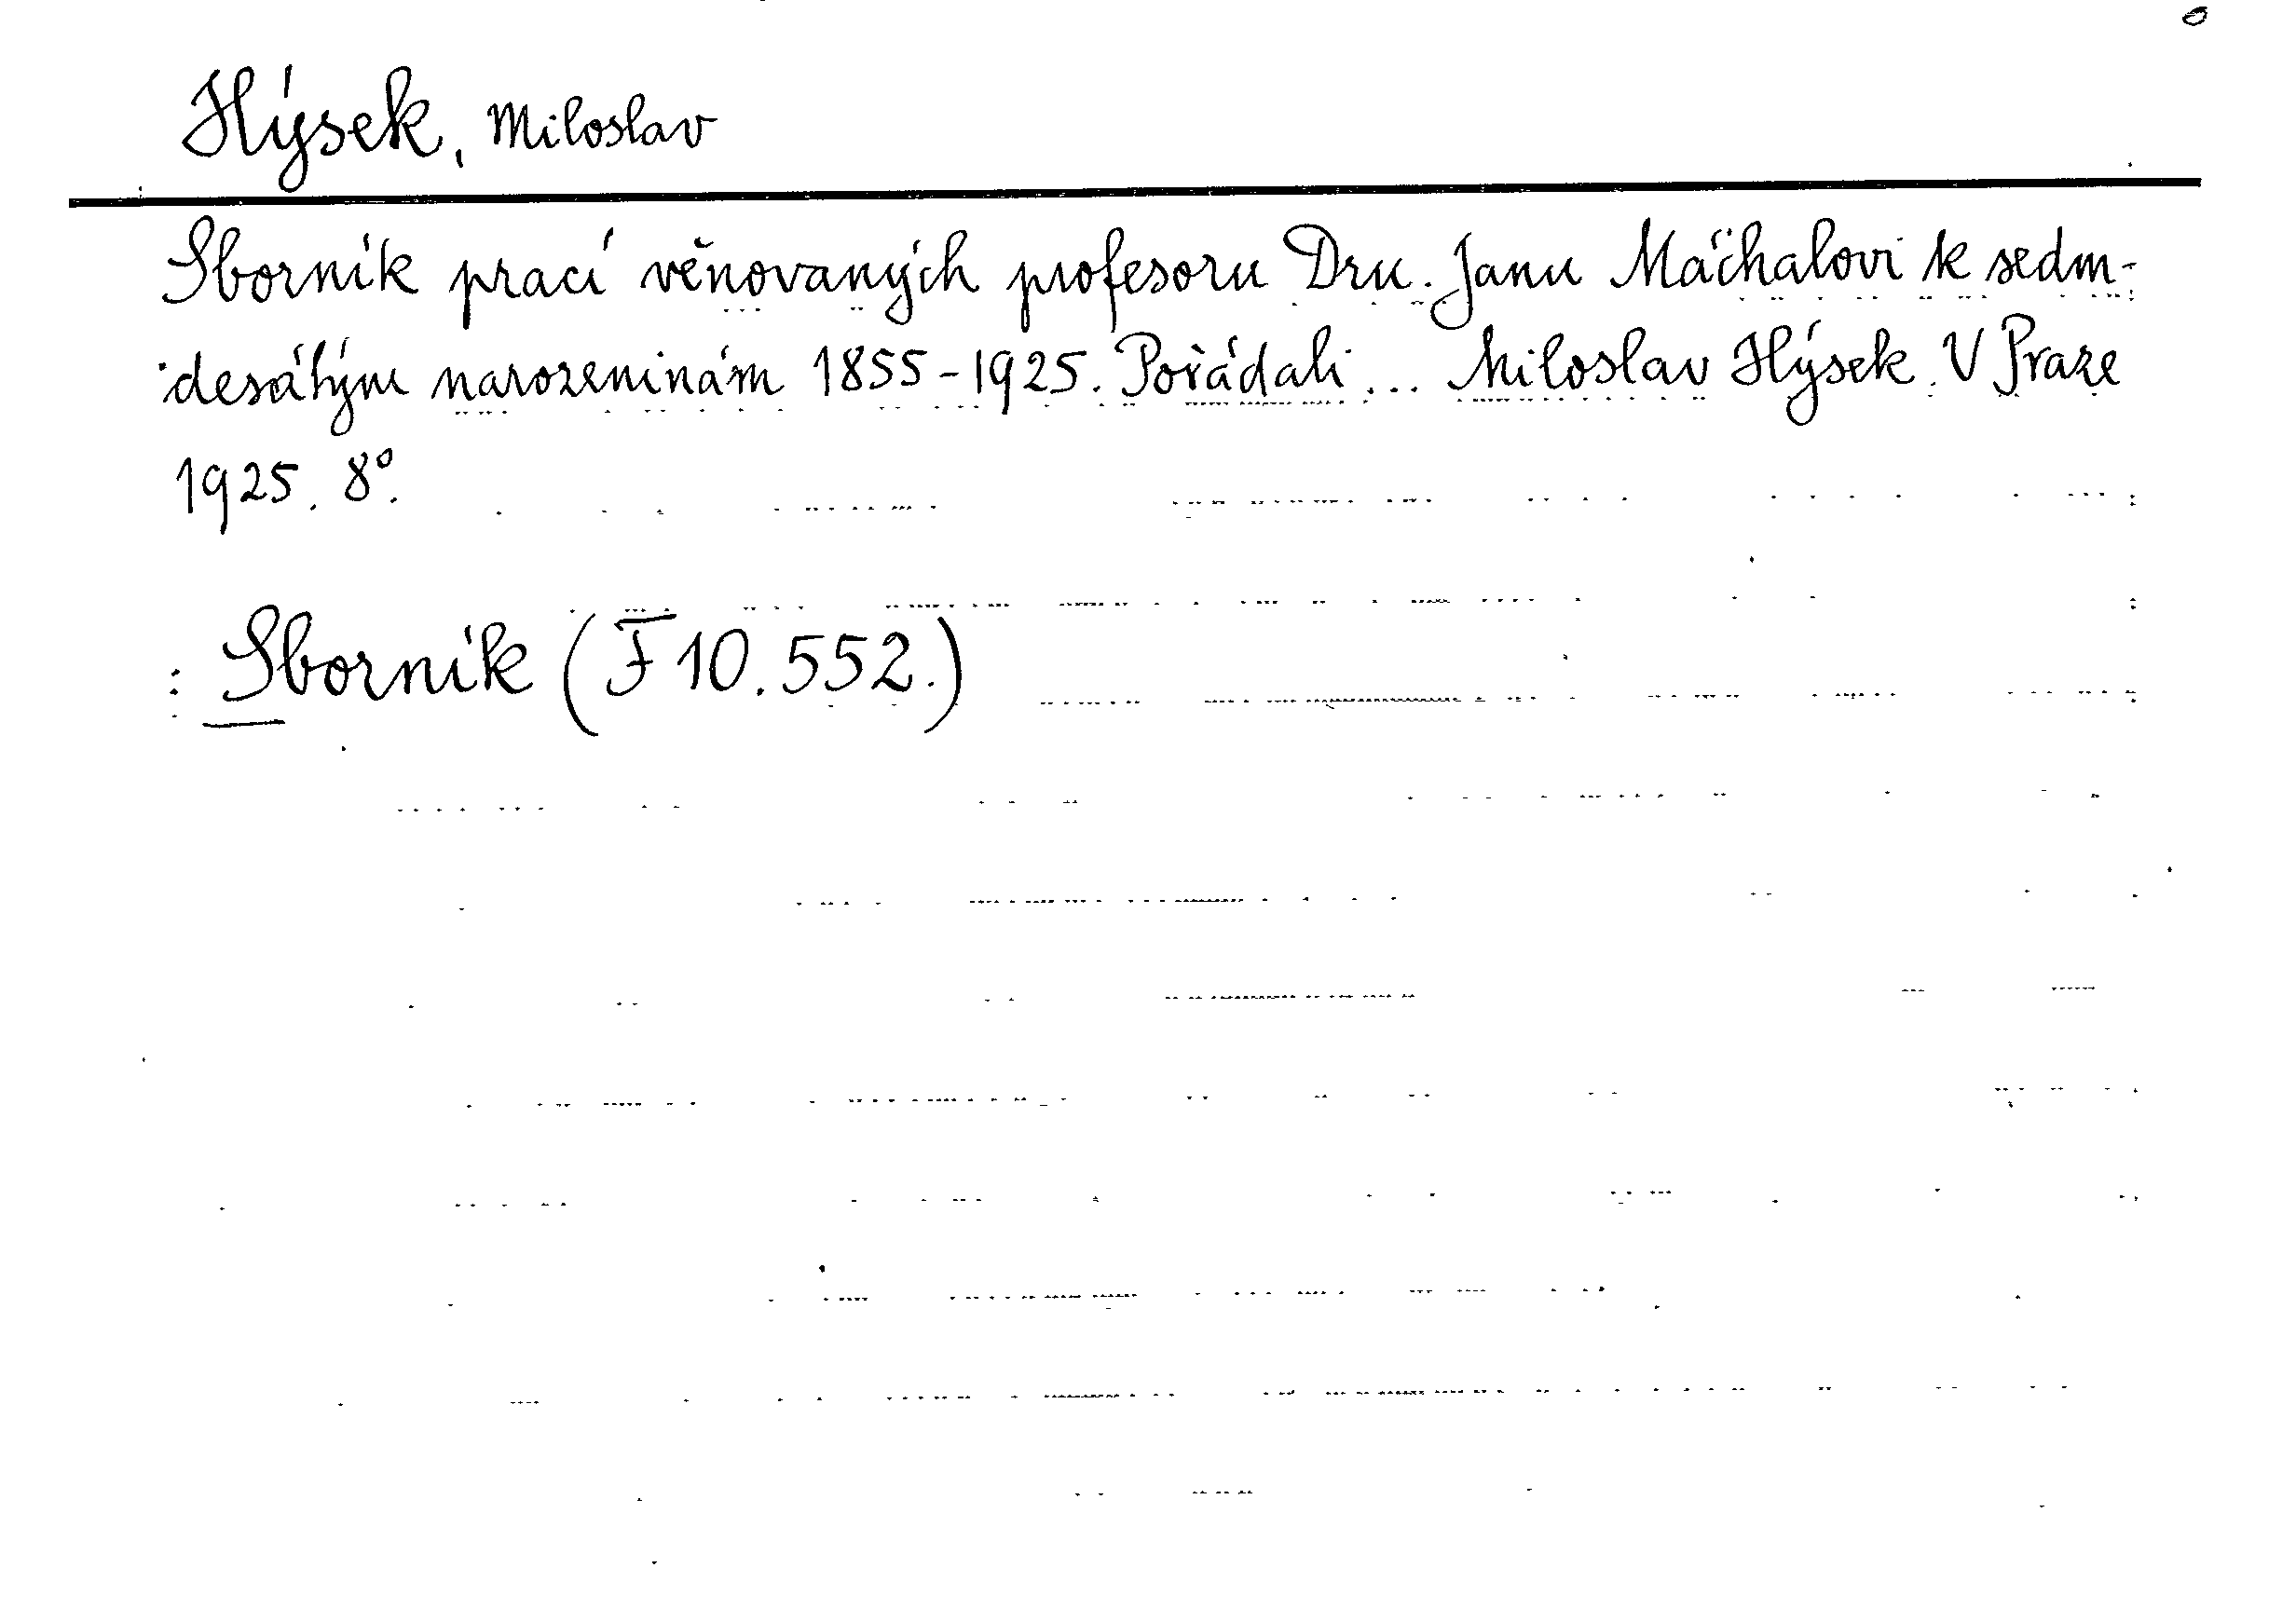 Hýsek, Miloslav
Sborník prací věnovaných profesoru Dru. Janu Máchalovi k sedm-
desátým narozeninám 1855-1925. Pořádali ... Miloslav Hýsek. V Praze
1925. 8°.
: Sborník (F 10.552.)